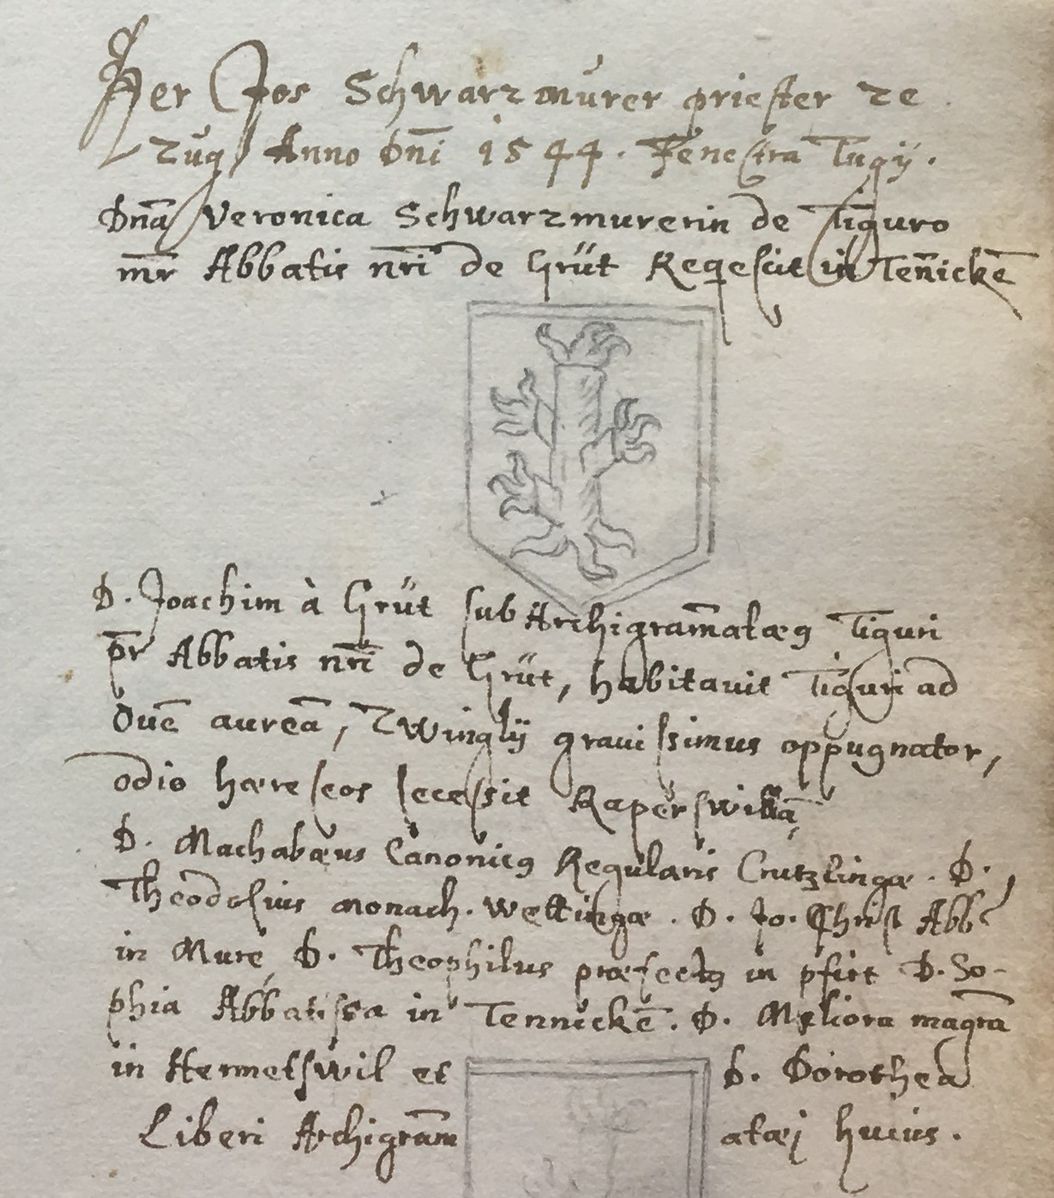 Her Jos Schwarzmurer priester ze
Zug Anno Dñi 1544. Fenestra Tugij.
Dña Veronica Schwarzmurerin de Tiguro
mr̄ Abbatis nr̄i de Grüt Reqescit in Teñickē
D. Joachim à Grüt sub Archigram̄atæꝯ Tiguri
pr̄ Abbatis nr̄i de Grüt, habitavit Tiguri ad
Ovē aureā, Zwinglij gravissimus oppugnator,
odio hæreseos secessit Raperswillā,
D. Machabæus Canonicꝯ Regularis Crutzlingæ. D.
Theodosius monach. Wettingæ. D. Jo. Christ Abb
in Mure, D. Theophilus præfectꝯ in pfirt D. So-
phia Abbatissa in Tennickē. D. Meliora magr̄a
in Hermetswil et D. Dorothea
Liberi Archigram̄atæi huius.